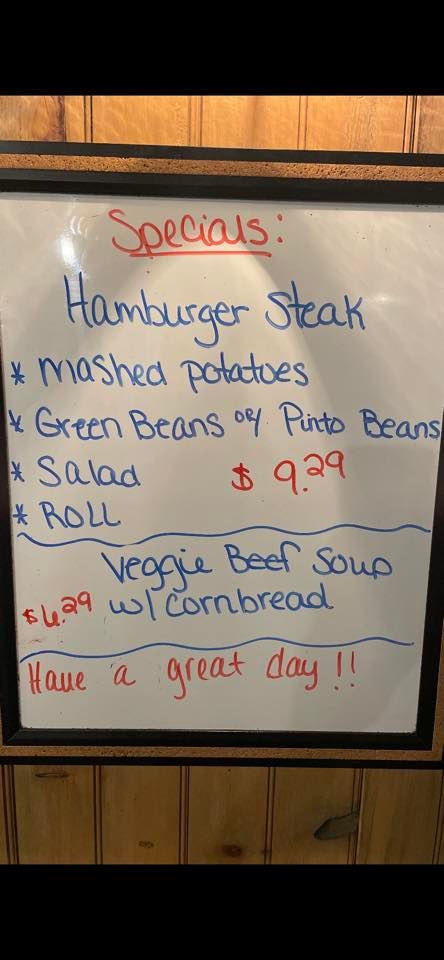 Specials:
Hamburger Steak
* mashed potatoes
* Green Beans or Pinto Beans
* Salad $ 9.29
* ROLL
Veggie Beef Soup
$6.29 w/ cornbread
Have a great day!!